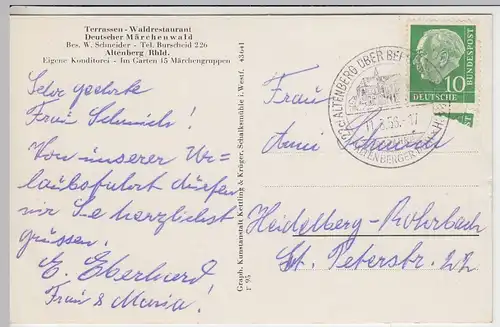 Terrassen-Waldrestaurant
Deutscher Märchenwald
Bes. W. Schneider - Tel. Burscheid 226
Altenberg/Rhld.
Eigene Konditorei - Im Garten 15 Märchengruppen
Sehr geehrte
Frau Schmid!
Von unserer Ur-
laubsfahrt dürfen
wir Sie herzlichst
grüssen.
E. Eberhard
Frau & Maria!
Graph. Kunstanstalt Kettling & Krüger, Schalksmühle i. Westf.
F 95
ALTENBERG ÜBER
ALTENBERGER
10
DEUTSCHE
BUNDESPOST
Frau
Anni Schmid
Heidelberg-Rohrbach
St. Peterstr.